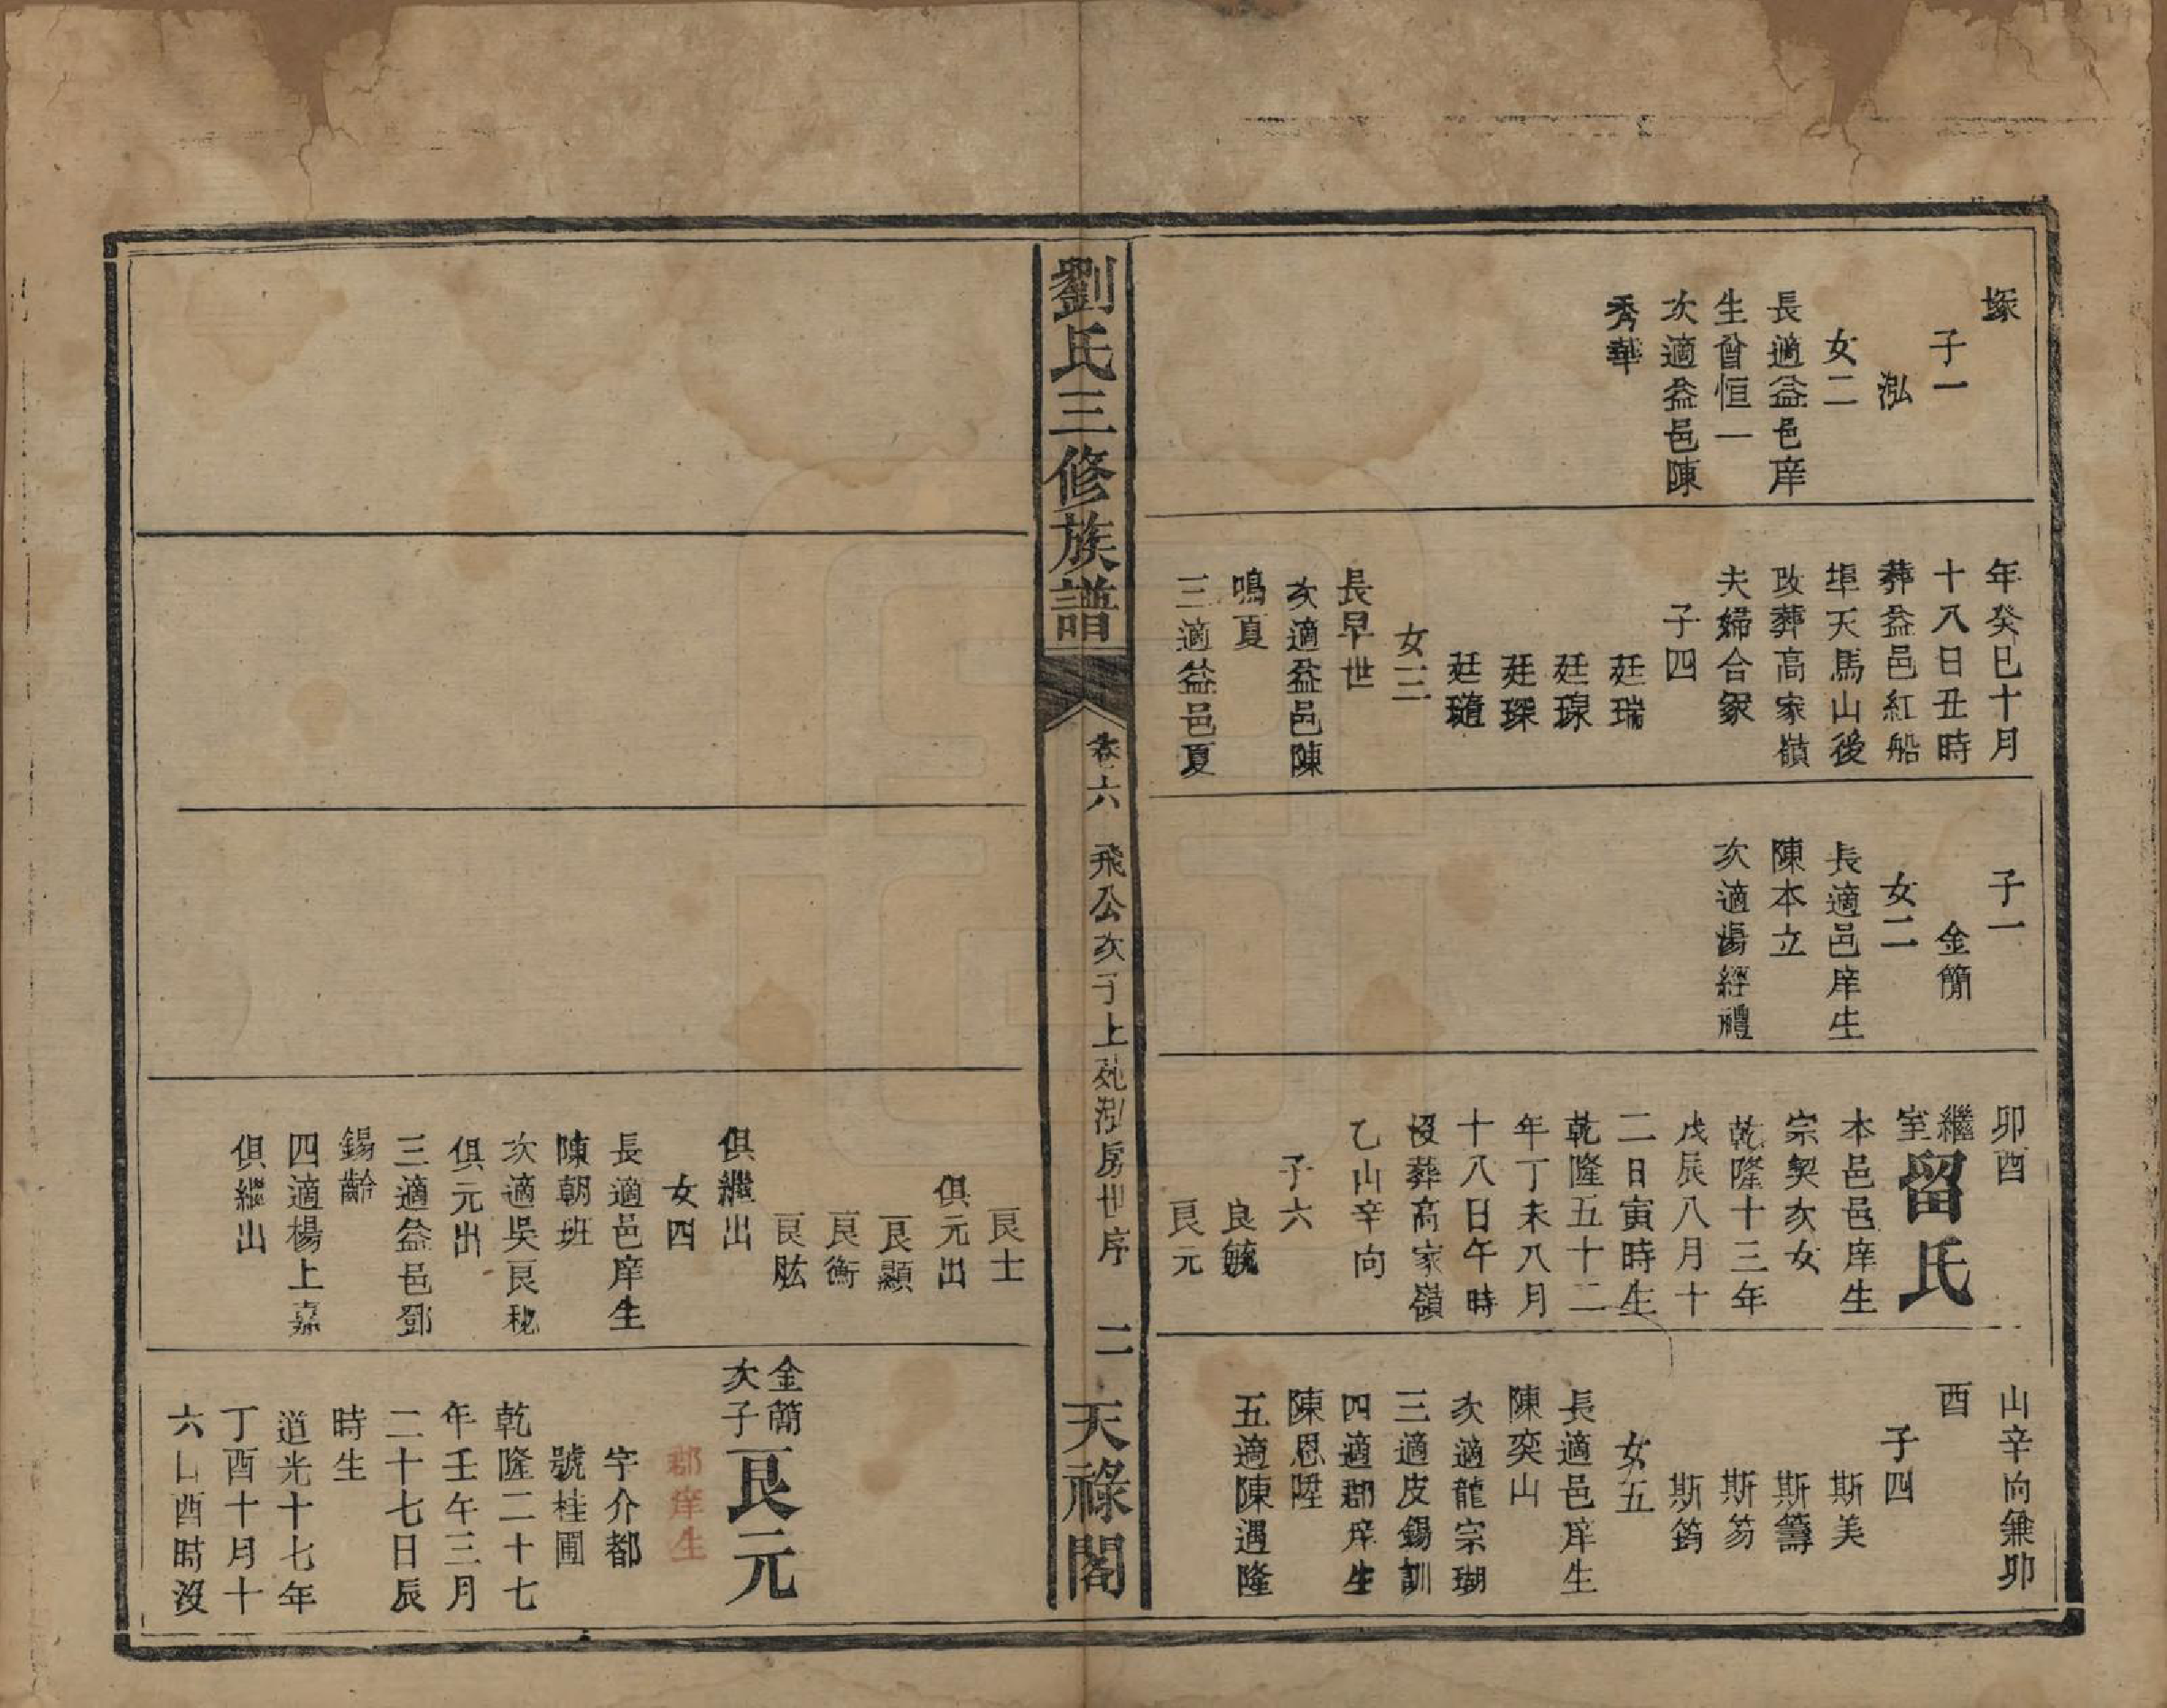 塚
子一
泓
女二
長適益邑庠
生曾恒一
次適益邑陳
秀華
年癸巳十月
十八日丑時
葬益邑紅船
埠天馬山後
改葬高家嶺
夫婦合冢
子四
廷瑞
廷琛
廷璲
女三
長早世
次適益邑陳
鳴夏
三適益邑夏
子一
金簡
女二
長適邑庠生
陳本立
次適湯經禮
卯酉
繼室留氏
本邑邑庠生
宗契次女
乾隆十三年
戊辰八月十
二日寅時生
乾隆五十二
年丁未八月
十八日午時
歿葬高家嶺
乙山辛向
子六
良毓
良元
山辛向兼卯
酉
子四
斯美
斯籌
斯笏
斯筠
女五
長適邑庠生
陳奕山
次適龍宗瑚
三適皮錫訓
四適郡庠生
陳恩陞
五適陳遇隆
劉氏三修族譜
卷六
飛公次子上苑泓房世序
二
天祿閣
良士
俱元出
良顯
良衡
良肱
俱繼出
女四
長適邑庠生
陳朝班
次適吳良秘
俱元出
三適益邑鄧
錫齡
四適楊上嘉
俱繼出
金簡次子良元
郡庠生
字介都
號桂圃
乾隆二十七
年壬午三月
二十七日辰
時生
道光十七年
丁酉十月十
六日酉時沒